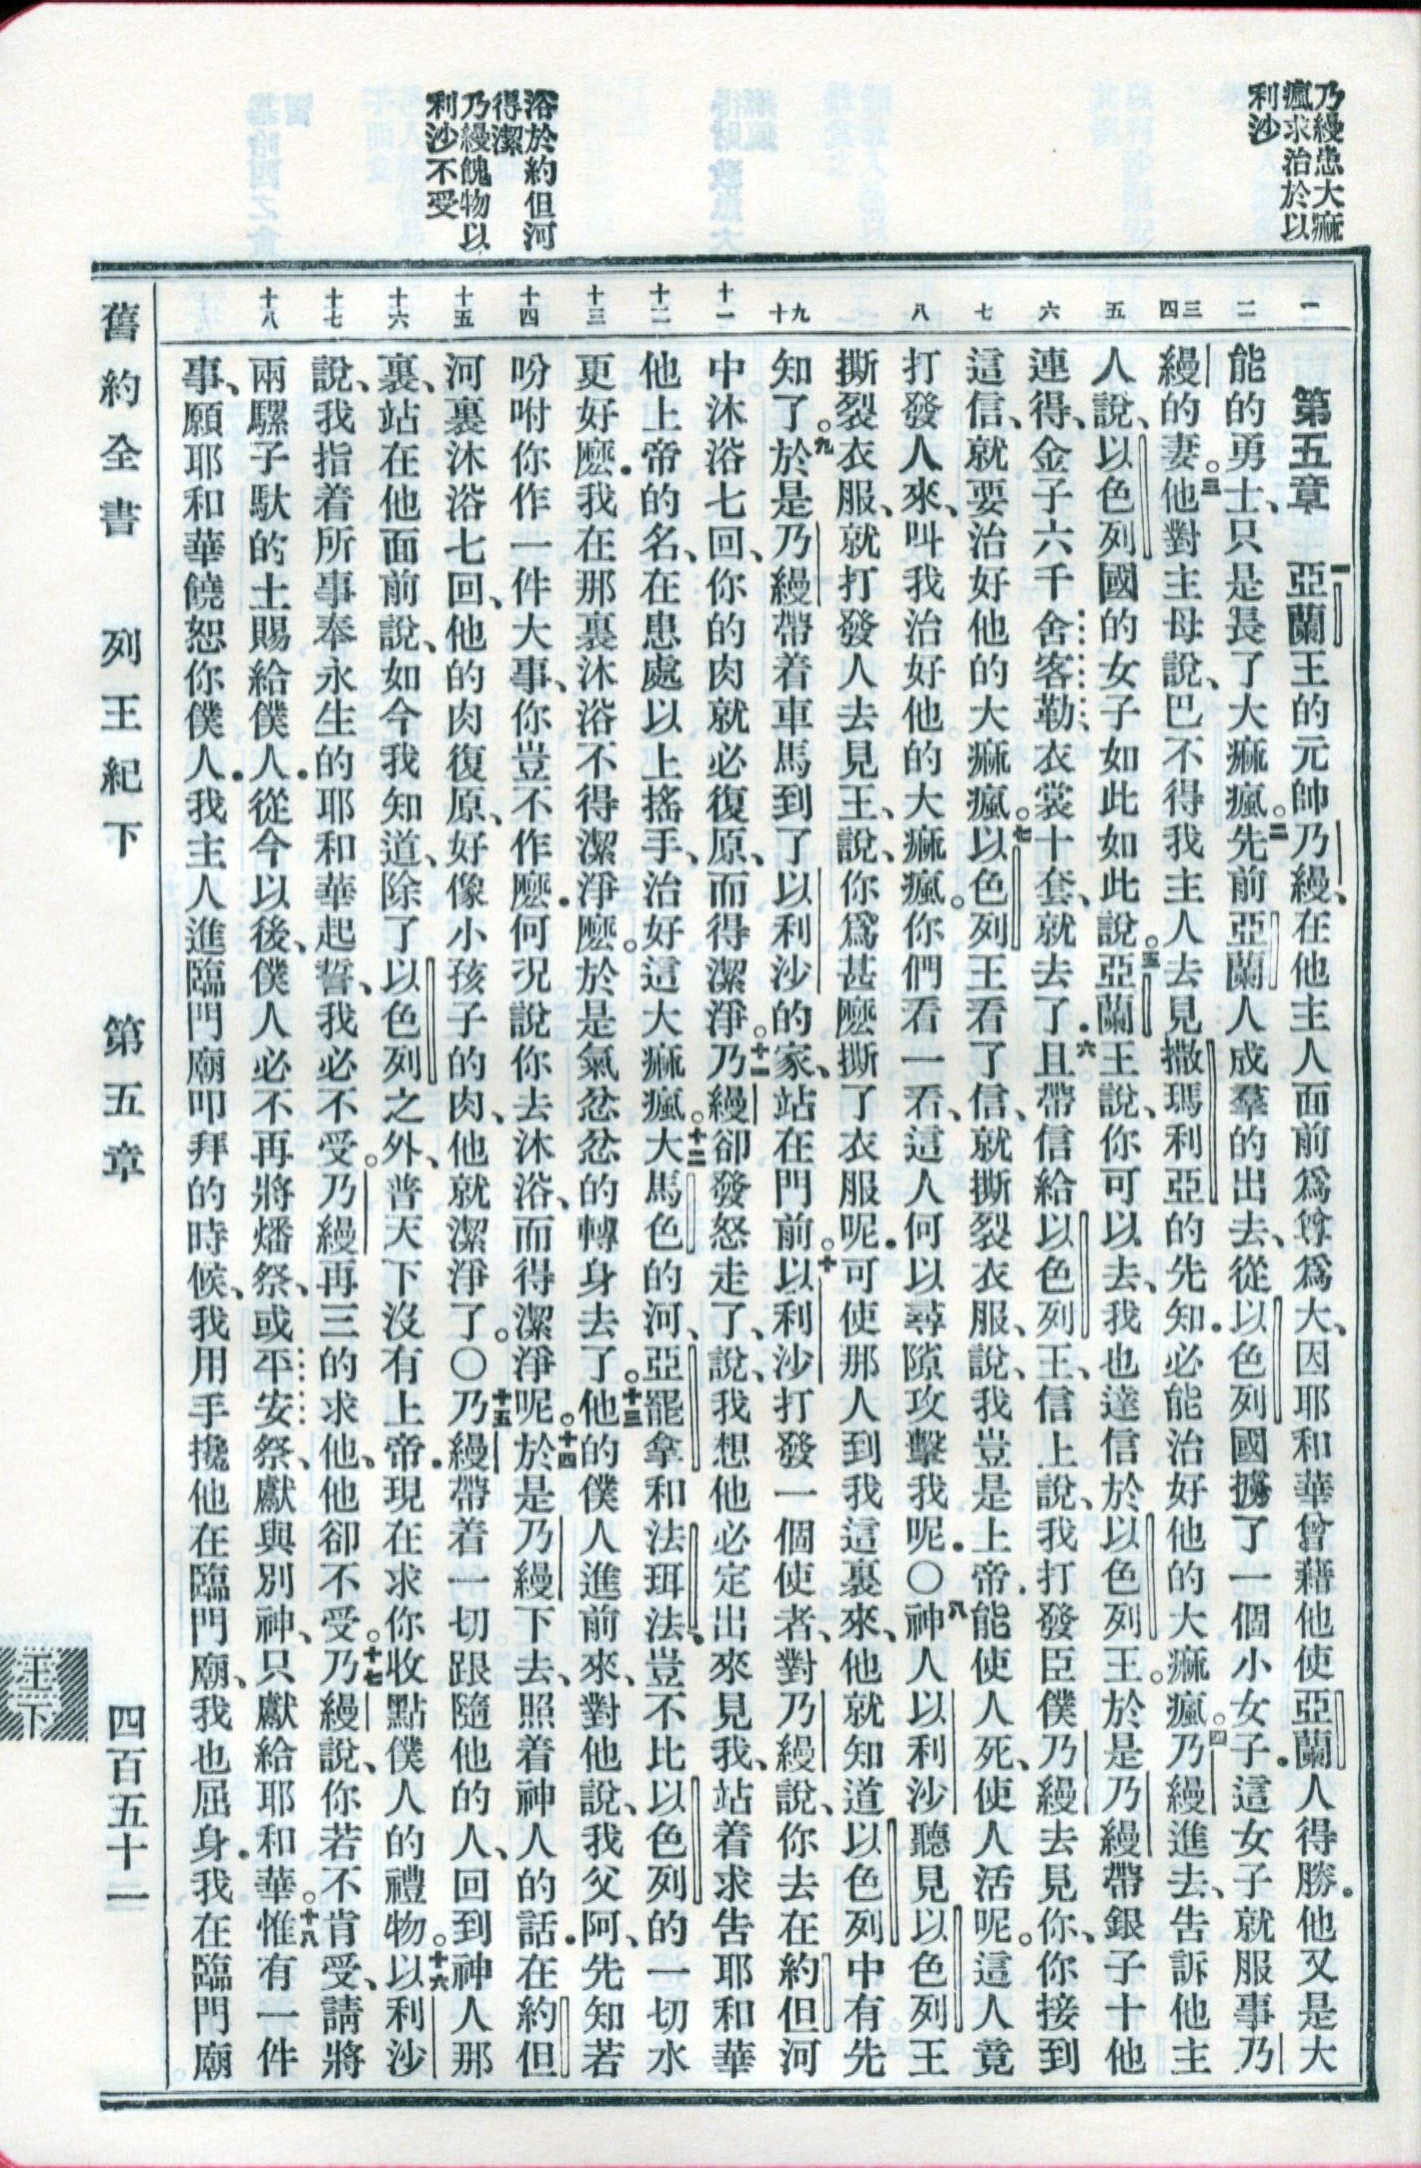 乃縵患大痲
瘋求治於以
利沙
浴於約但河
得潔
乃縵餽物以
利沙不受
一
二
三四
五
六
七
八
九十
十一
十二
十三
十四
十五
十六
十七
十八
第五章　一亞蘭王的元帥乃縵、在他主人面前爲尊爲大、因耶和華曾藉他使亞蘭人得勝．他又是大
能的勇士、只是長了大痲瘋。二先前亞蘭人成羣的出去、從以色列國擄了一個小女子．這女子就服事乃
縵的妻。三他對主母說、巴不得我主人去見撒瑪利亞的先知．必能治好他的大痲瘋。四乃縵進去、告訴他主
人說、以色列國的女子如此如此說。五亞蘭王說、你可以去、我也達信於以色列王。於是乃縵帶銀子十他
連得、金子六千舍客勒、衣裳十套、就去了．六且帶信給以色列王、信上說、我打發臣僕乃縵去見你、你接到
這信、就要治好他的大痲瘋。七以色列王看了信、就撕裂衣服、說、我豈是上帝．能使人死、使人活呢。這人竟
打發人來、叫我治好他的大痲瘋。你們看一看、這人何以尋隙攻擊我呢．〇八神人以利沙聽見以色列王
撕裂衣服、就打發人去見王、說、你爲甚麽撕了衣服呢．可使那人到我這裏來、他就知道以色列中有先
知了。九於是乃縵帶着車馬到了以利沙的家、站在門前。十以利沙打發一個使者、對乃縵說、你去在約但河
中沐浴七回、你的肉就必復原、而得潔淨。十一乃縵卻發怒走了、說、我想他必定出來見我、站着求告耶和華
他上帝的名、在患處以上搖手、治好這大痲瘋。十二大馬色的河、亞罷拿和法珥法、豈不比以色列的一切水
更好麽．我在那裏沐浴不得潔淨麽。於是氣忿忿的轉身去了。十三他的僕人進前來、對他說、我父阿、先知若
吩咐你作一件大事、你豈不作麽．何況說你去沐浴、而得潔淨呢。十四於是乃縵下去、照着神人的話．在約但
河裏沐浴七回、他的肉復原、好像小孩子的肉、他就潔淨了。〇十五乃縵帶着一切跟隨他的人、回到神人那
裏、站在他面前說、如今我知道、除了以色列之外、普天下沒有上帝．現在求你收點僕人的禮物。十六以利沙
說、我指着所事奉永生的耶和華起誓、我必不受。乃縵再三的求他、他卻不受。十七乃縵說、你若不肯受、請將
兩騾子馱的土賜給僕人．從今以後、僕人必不再將燔祭、或平安祭、獻與別神、只獻給耶和華。十八惟有一件
事、願耶和華饒恕你僕人．我主人進臨門廟叩拜的時候、我用手攙他在臨門廟、我也屈身．我在臨門廟
舊約全書　列王紀下　第五章　四百五十一
王下